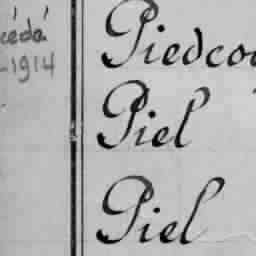 cédé
-1914
Piedcou
Piel
Piel